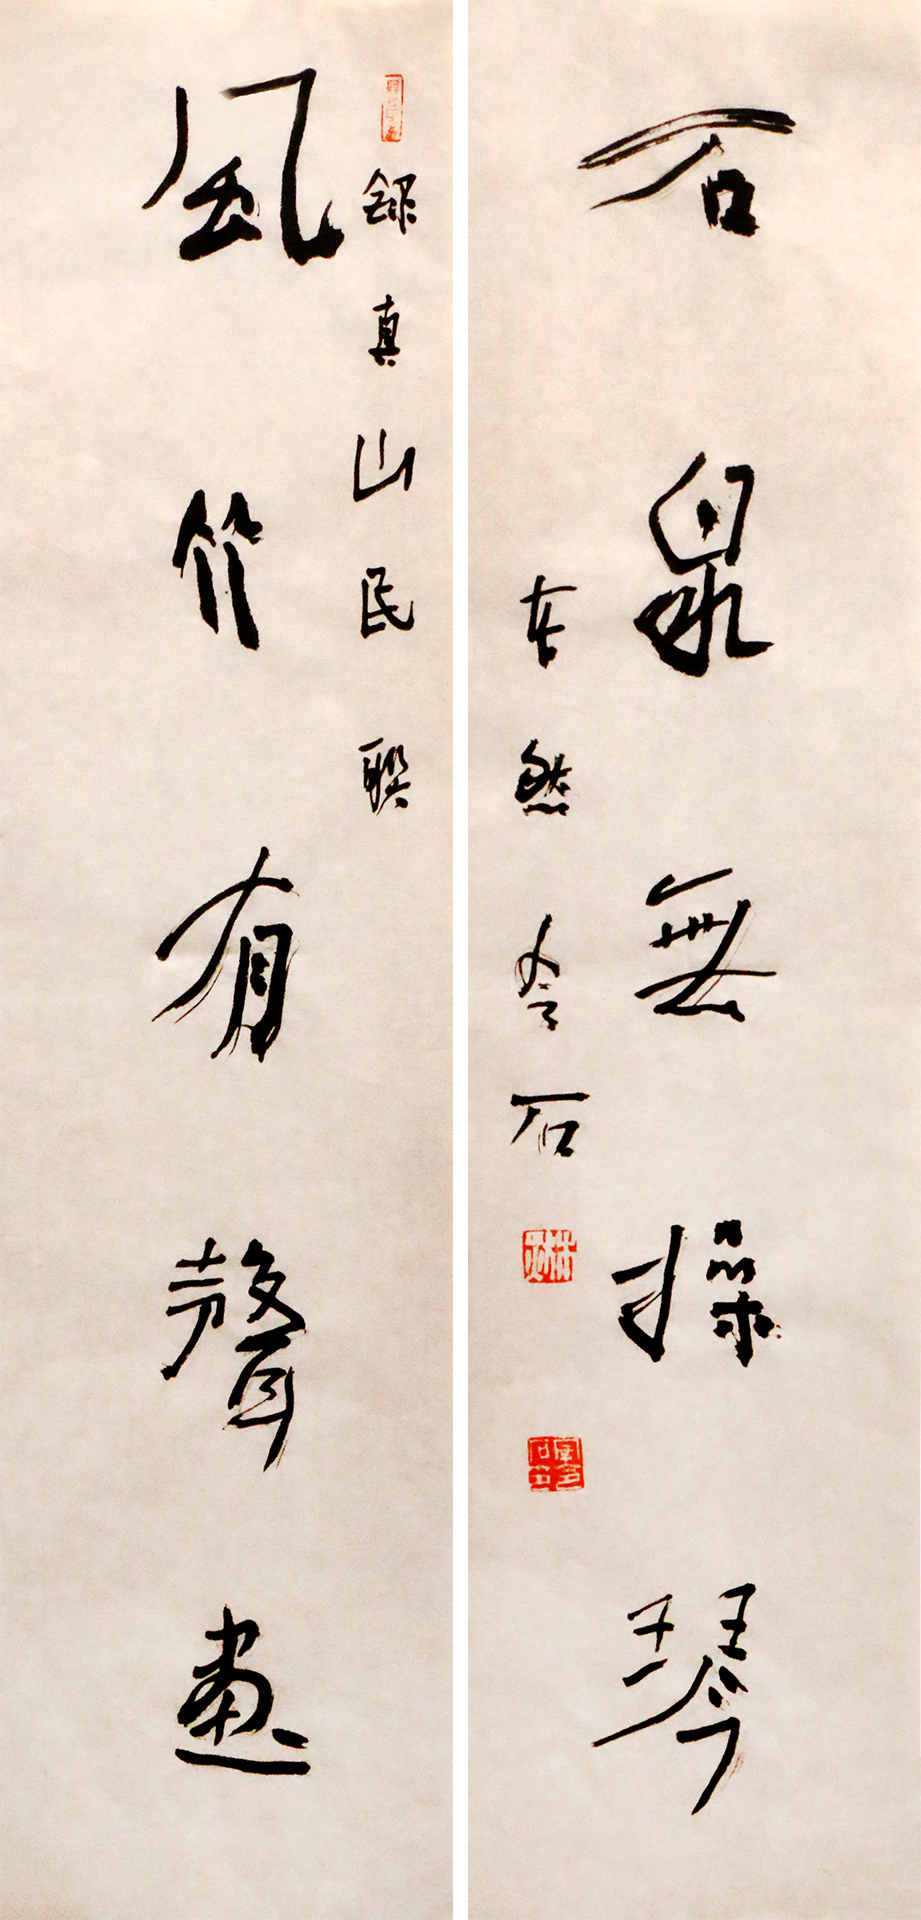 風竹有聲畫
錄真山民聯
石泉無操琴
然石